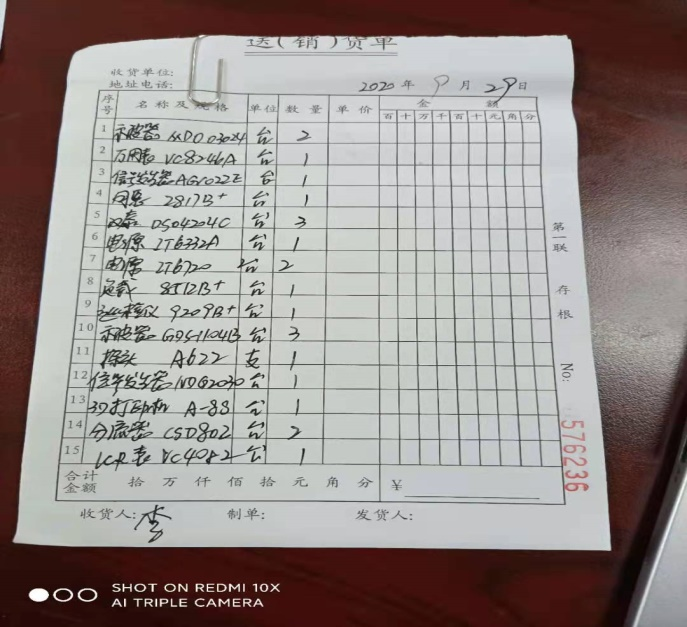 送(销)货单
收货单位:
地址电话: 2020年 9月 29日
序号 名称及规格 单位 数量 单价 金额
百 十 万 千 百 十 元 角 分
1 示波器 MDO3024 台 2
2 万用表 VC8246A 台 1
3 信号发生器 AG1022E 台 1
4 2817B+ 台 1
5 DSO4204C 台 3
6 电源 IT6332A 台 1
7 电源 IT6720 台 2
8 负载 8512B+ 台 1
9 巡检仪 9209B+ 台 1
10 示波器 GDS-1104B 台 3
11 探头 A622 支 1
12 信号发生器 台 1
13 3D打印机 A-88 台 1
14 CSD802 台 2
15 LCR表 VC4092 台 1
合计金额 拾 万 仟 佰 拾 元 角 分 ¥
收货人: 李 制单: 发货人:
第一联 存根 No: 576236
SHOT ON REDMI 10X
AI TRIPLE CAMERA